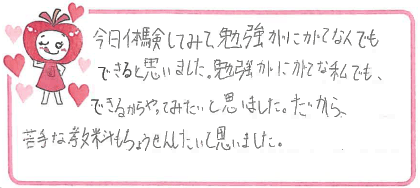 今日体験してみて、勉強がにがてな人でも
できると思いました。勉強がにがてな私でも、
できるからやってみたいと思いました。だから、
苦手な教科もちょうせんしたいと思いました。